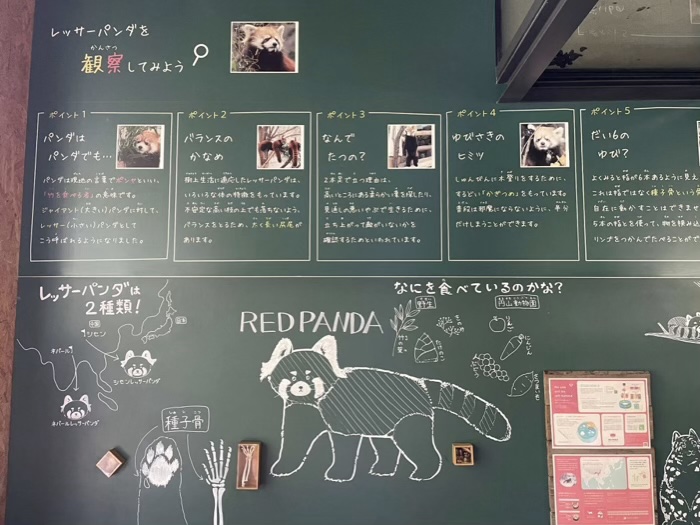 レッサーパンダを
かんさつ
観察してみよう
ポイント1
パンダは
パンダでも…
パンダは現地の言葉でポンヤといい、
「竹を食べる者」の意味です。
ジャイアント(大きい)パンダに対して、
レッサー(小さい)パンダとして
こう呼ばれるようになりました。
ポイント2
バランスの
かなめ
樹上生活に適応したレッサーパンダは、
いろいろな体の特徴をもっています。
不安定な高い枝の上でも落ちないよう、
バランスをとるため、太く長い尻尾が
あります。
ポイント3
なんで
たつの?
2本足で立つ理由は、
高いところにある柔らかい葉を探したり、
見通しの悪いやぶで生きるために、
立ち上がって敵がいないかを
確認するためといわれています。
ポイント4
ゆびさきの
ヒミツ
じゅんばんに木登りをするために、
するどい「かぎつめ」をもっています。
普段は邪魔にならないように、半分
だけしまうことができます。
ポイント5
だい6の
ゆび?
よくみると指が6本あるように見え
これは指ではなく種子骨という
自在に動かすことはできませ
5本の指とを使って、物を挟み込
リンゴをつかんでたべることが
レッサーパンダは
2種類!
中国
シセン
ネパール
シセンレッサーパンダ
ネパールレッサーパンダ
しゅしこつ
種子骨
RED PANDA
なにを食べているのかな?
野生
竹の葉
たけのこ
円山動物園
りんご
にんじん
ぶどう
さつまいも